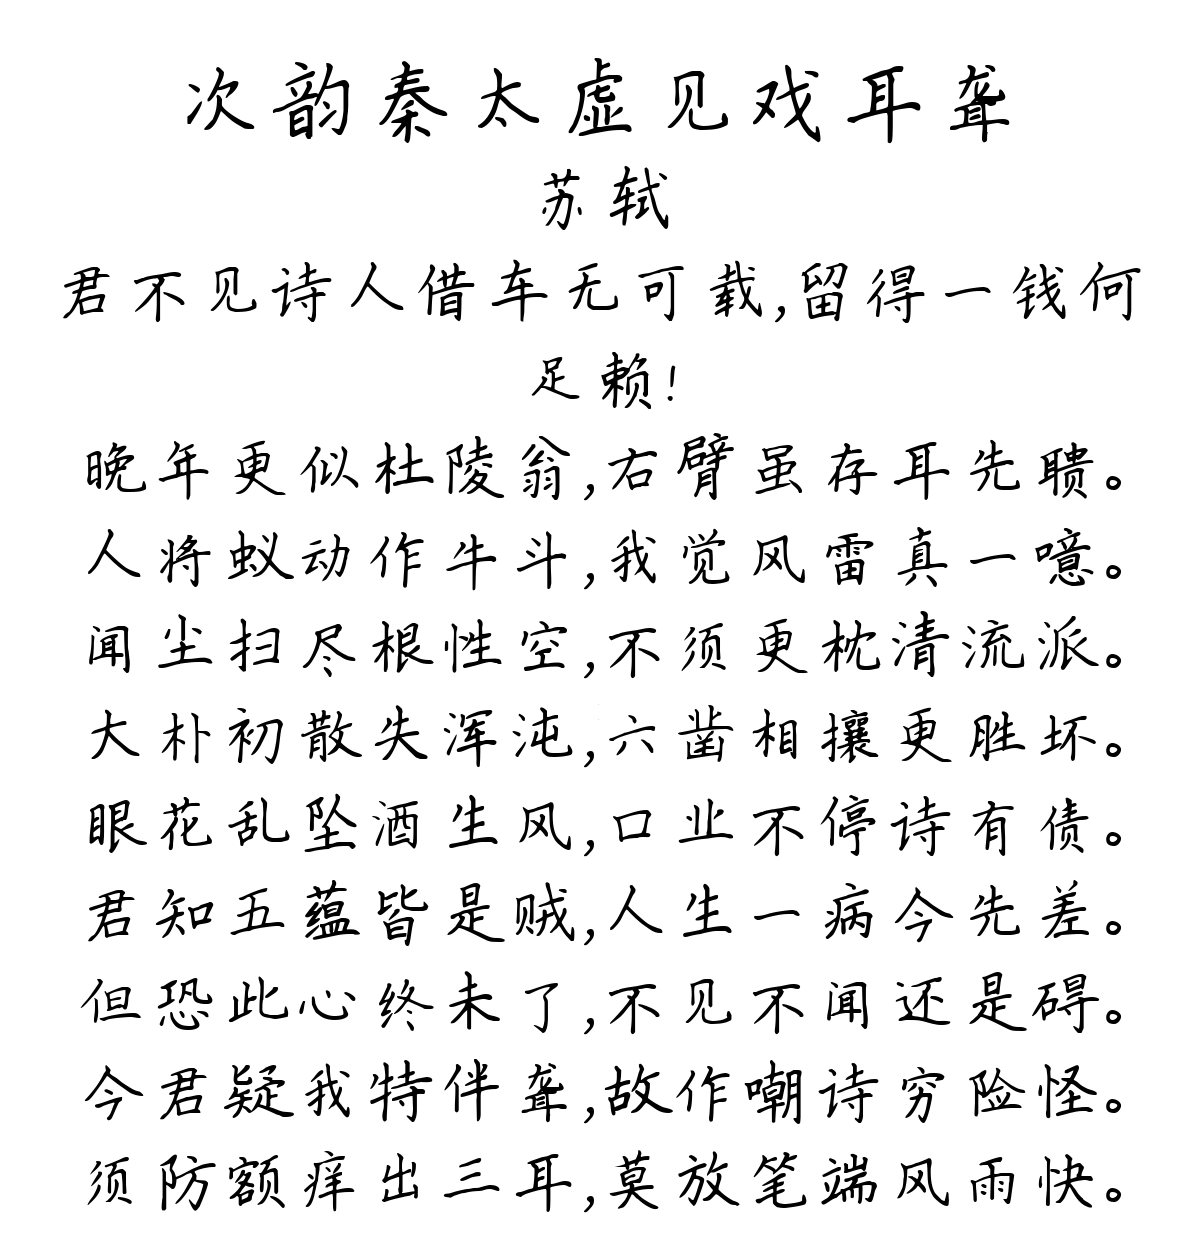 次韵秦太虚见戏耳聋
苏轼
君不见诗人借车无可载,留得一钱何
足赖!
晚年更似杜陵翁,右臂虽存耳先聩。
人将蚁动作牛斗,我觉风雷真一噫。
闻尘扫尽根性空,不须更枕清流派。
大朴初散失浑沌,六凿相攘更胜坏。
眼花乱坠酒生风,口业不停诗有债。
君知五蕴皆是贼,人生一病今先差。
但恐此心终未了,不见不闻还是碍。
今君疑我特佯聋,故作嘲诗穷险怪。
须防额痒出三耳,莫放笔端风雨快。